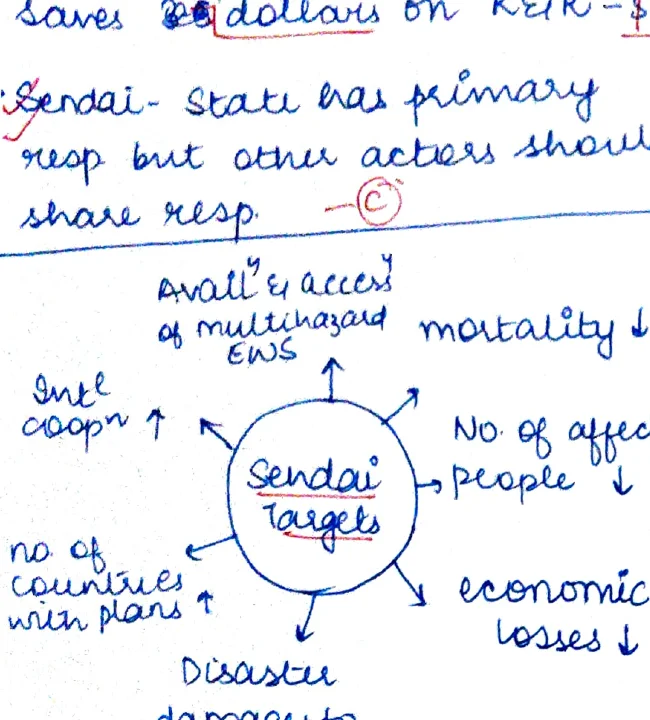 saves dollars on R & R - $
Sendai - State has primary
resp but other actors shoul
share resp. - C
Avail^y & access^y
of multihazard
EWS
mortality ↓
Int^l
coop^n ↑
No. of affec
people ↓
Sendai
Targets
no. of
countries
with plans ↑
economic
losses ↓
Disaster
damage to